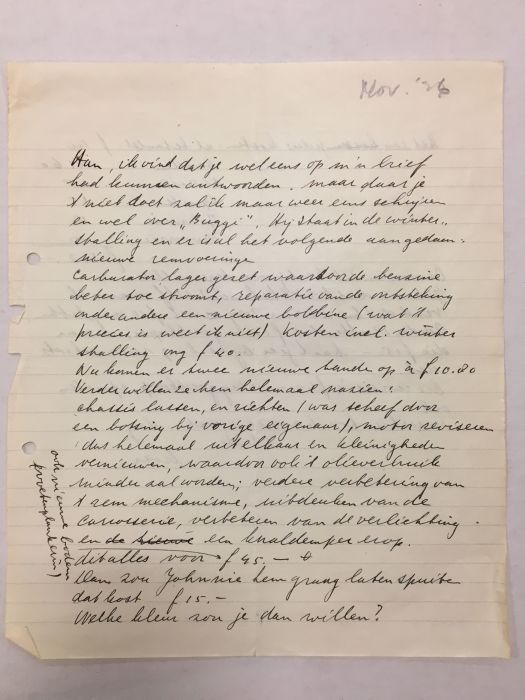 Nov. '36
Han, ik vind dat je wel eens op m'n brief
had kunnen antwoorden. maar daar je
't niet doet zal ik maar weer eens schrijven
en wel over „Buggi". Hij staat in de winter..
stalling en er is al het volgende aan gedaan:
nieuwe remvoeringe
carburator lager gezet waardoor de benzine
beter toe stroomt, reparatie van de ontsteking
onder andere een nieuwe bobbine (wat 't
precies is weet ik niet) kosten incl. winter
stalling ong f 40.
Nu komen er twee nieuwe bande op à f 10.80
Verder willen ze hem helemaal nazien:
chassis lassen, en richten (was scheef door
een botsing bij vorige eigenaar), motor reviseren
(dus helemaal uit elkaar en kleinigheden
vernieuwen, waardoor ook 't olieverbruik
minder zal worden; verdere verbetering van
't rem mechanisme, uitdeuken van de
carrosserie, verbeteren van de verlichting.
en de nieuwe een knaldemper erop.
dit alles voor f 45,-
Dan zou Johnnie hem graag laten spuiten
dat kost f 15.-
Welke kleur zou je dan willen?
ook nieuwe bodem